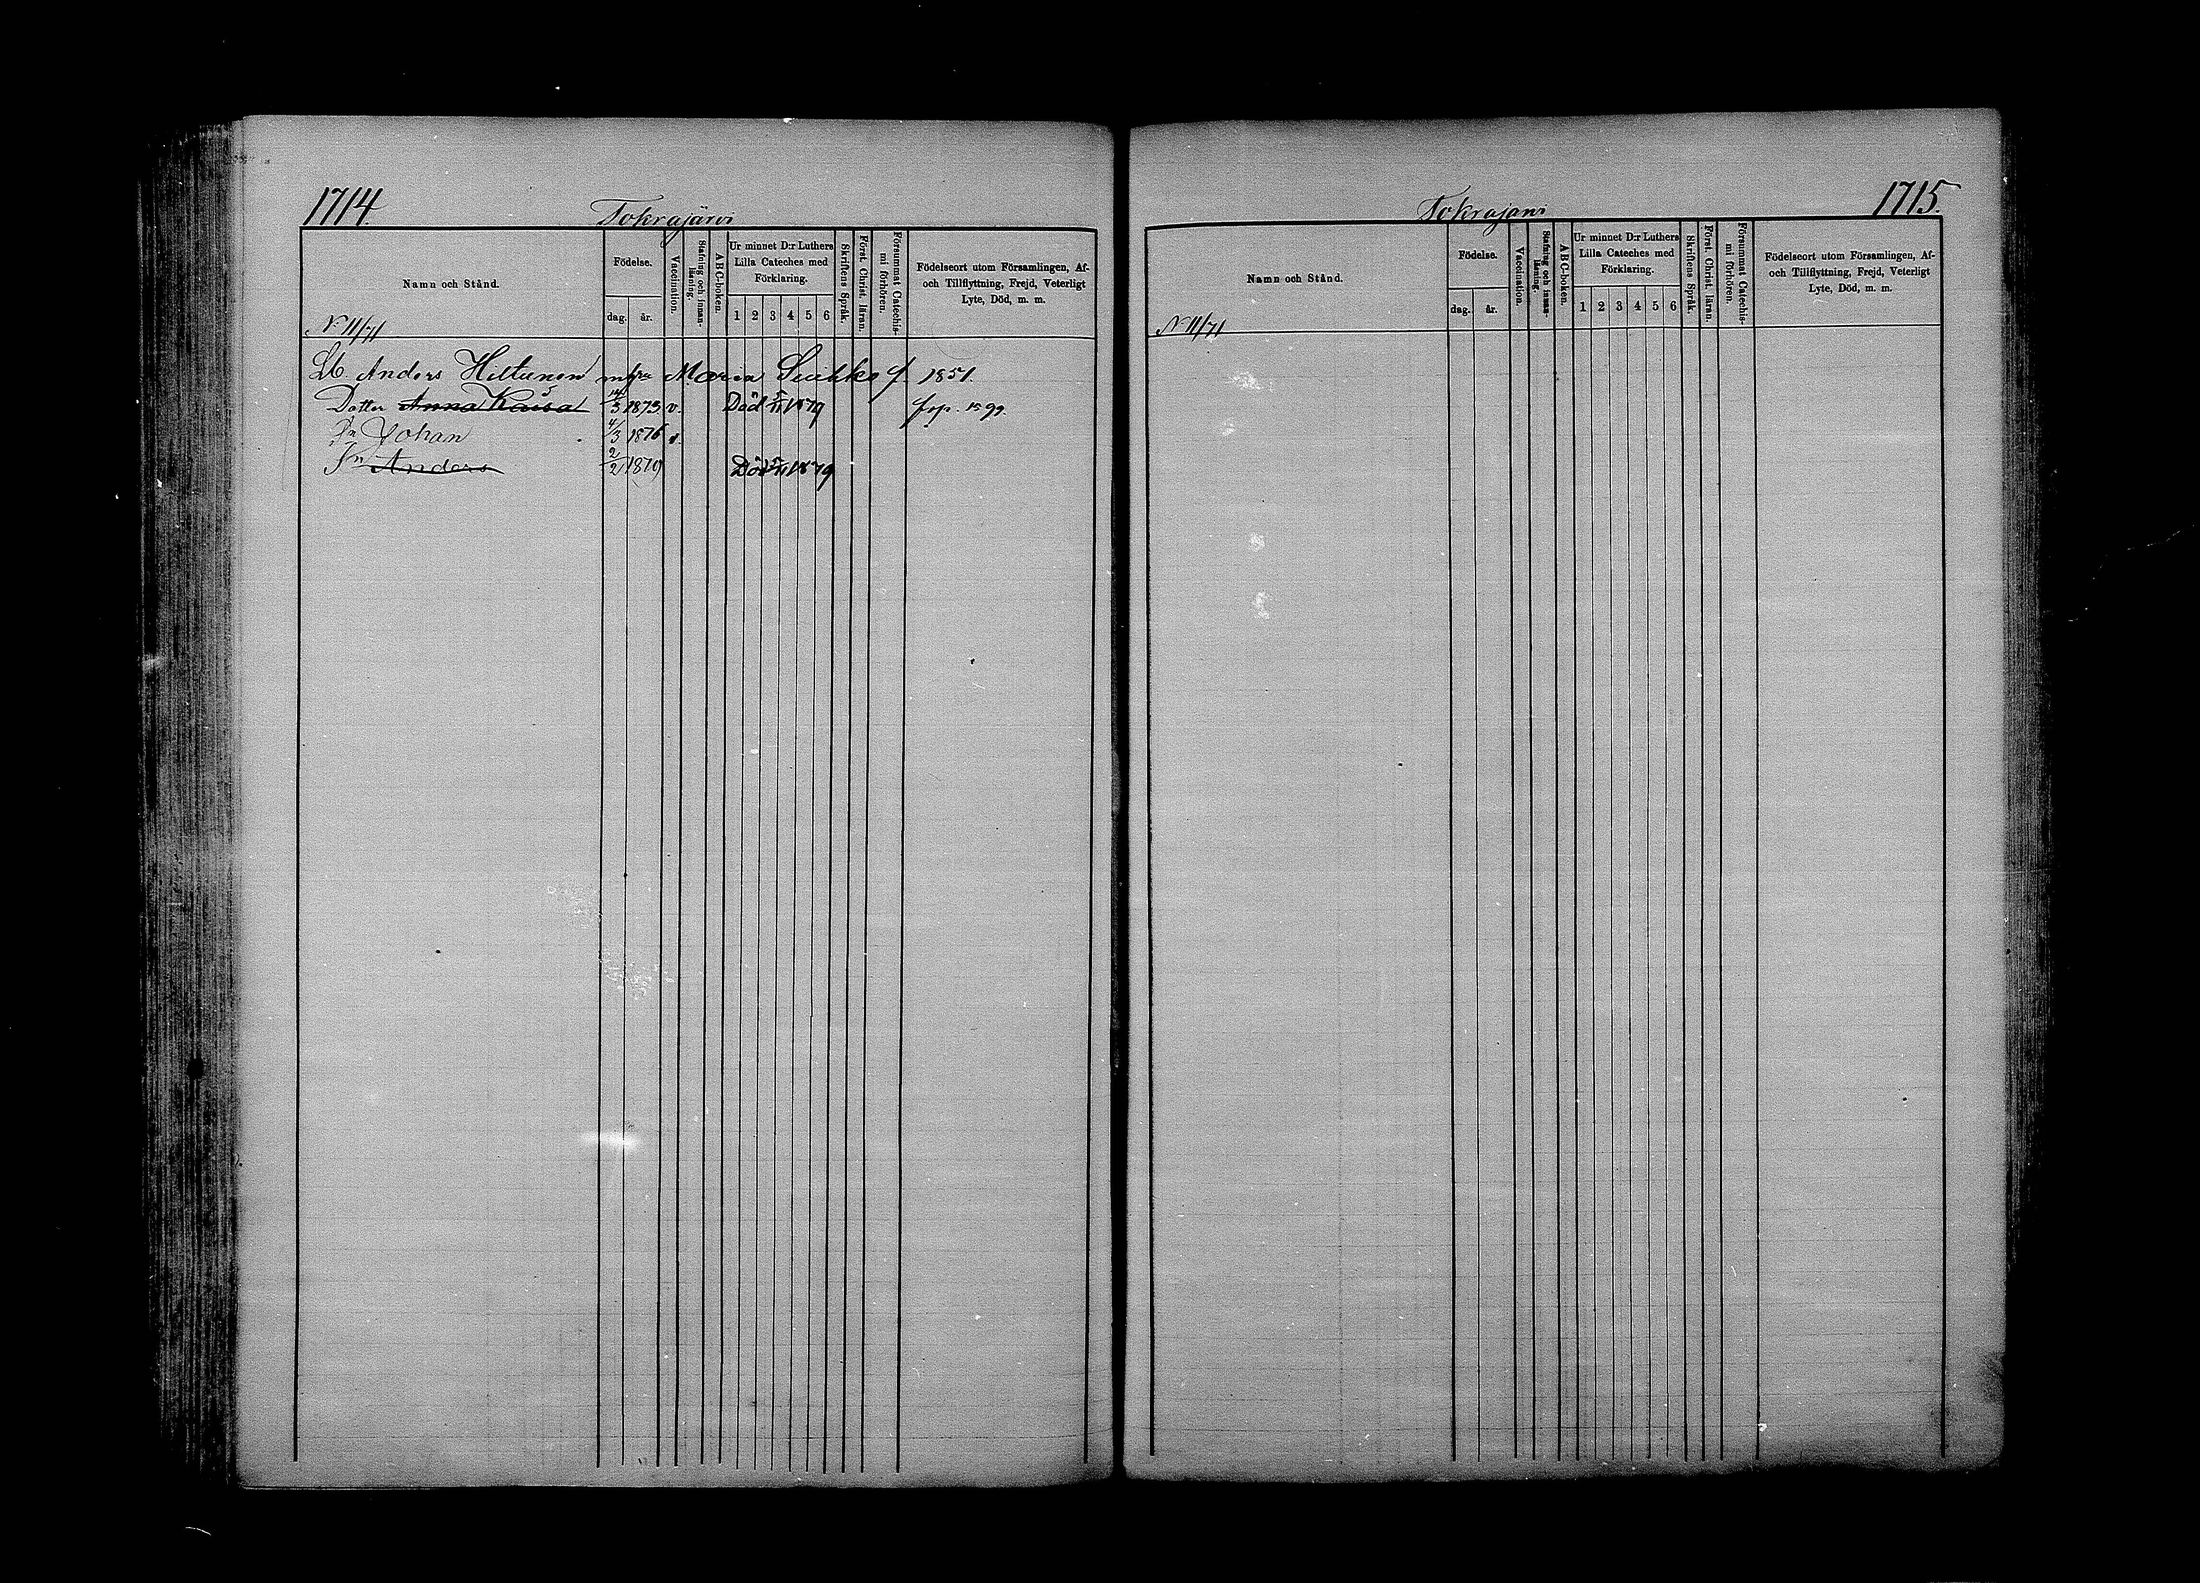 1714.
Tokrajärvi
Namn och Stånd.
Födelse.
dag.
år.
Vaccination.
Stafning och innan-
läsning.
ABC-boken.
Ur minnet D:r Luthers
Lilla Cateches med
Förklaring.
1 2 3 4 5 6
Skriftens Språk.
Först. Christ. läran.
Försummat Catechis-
mi förhören.
Födelseort utom Församlingen, Af-
och Tillflyttning, Frejd, Veterligt
Lyte, Död, m. m.
N 11/71
Anders Hiltunen m hu Maria Suhko f. 1851.
Dotter Anna Kaisa 3 1873 v. Död 1879 p. 1599.
Sn Johan 4/3 1876 v.
Sn Anders 2/2 Död 1879
1715.
Tokrajärvi
Namn och Stånd.
Födelse.
dag.
år.
Vaccination.
Stafning och innan-
läsning.
ABC-boken.
Ur minnet D:r Luthers
Lilla Cateches med
Förklaring.
1 2 3 4 5 6
Skriftens Språk.
Först. Christ. läran.
Försummat Catechis-
mi förhören.
Födelseort utom Församlingen, Af-
och Tillflyttning, Frejd, Veterligt
Lyte, Död, m. m.
N 11/71